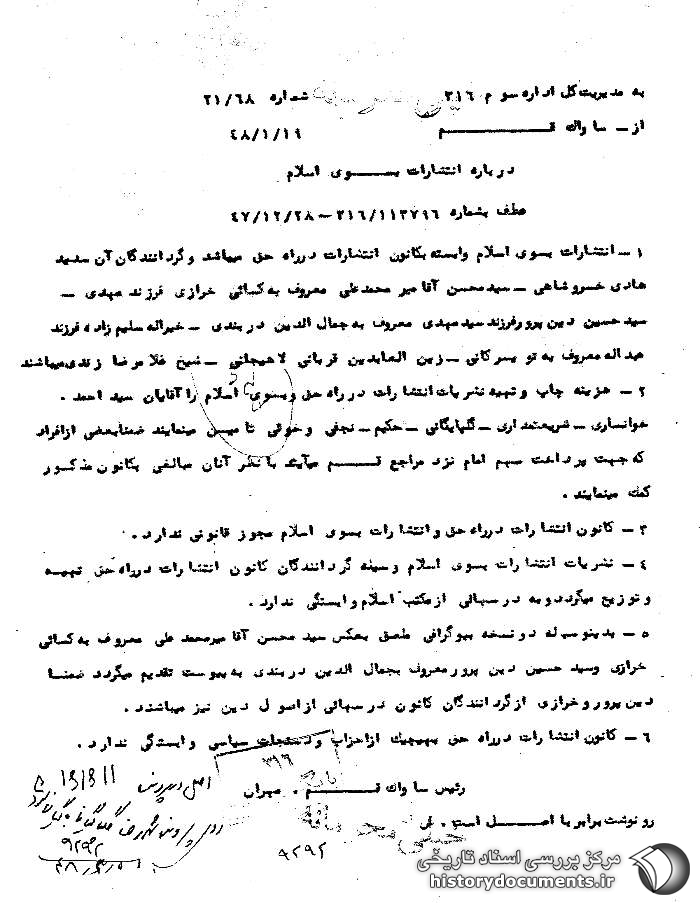 به مدیریت کل اداره سوم ۳۱۶ شماره ۲۱/۶۸
از ــ ساواک قــم ۴۸/۱/۱۹
درباره انتشارات بسوی اسلام
عطف بشماره ۳۱۶/۱۱۳۷۹۶ – ۴۷/۱۲/۲۸
۱ ــ انتشارات بسوی اسلام وابسته بکانون انتشارات درراه حق میباشد و گردانندگان آن سدید
هادی خسروشاهی ــ سید محسن آقا میر محمد علی معروف به کسائی خرازی فرزند مهدی ــ
سید حسین دین پرور فرزند سید مهدی معروف به جمال الدین دربندی ــ خیراله سلیم زاده فرزند
عبداله معروف به تویسرکانی ــ زین العابدین قربانی لاهیجانی ــ شیخ غلامرضا زندی میباشند
۲ ــ هزینه چاپ و تهیه نشریات انتشارات درراه حق و بسوی اسلام را آقایان سید احمد .
خوانساری ــ شریعتمداری ــ گلپایگانی ــ حکیم ــ نجفی و خوئی تامین مینمایند ضمنا بعضی از افراد
که جهت پرداخت سهم امام نزد مراجع قــم میآیند با نظر آنان مبالغی بکانون مذکور
کمک مینمایند .
۳ ــ کانون انتشارات درراه حق و انتشارات بسوی اسلام مجوز قانونی ندارد .
۴ ــ نشریات انتشارات بسوی اسلام وسیله گردانندگان کانون انتشارات درراه حق تهیه
و توزیع میگردد و به درسهائی از مکتب اسلام وابستگی ندارد .
۵ ــ بدینوسیله دو نسخه بیوگرافی ملصق بعکس سید محسن آقا میرمحمد علی معروف به کسائی
خرازی و سید حسین دین پرور معروف بجمال الدین دربندی به پیوست تقدیم میگردد ضمنا
دین پرور و خرازی از گردانندگان کانون درسهائی از اصول دین نیز میباشند .
۶ ــ کانون انتشارات درراه حق بهیچیک از احزاب و دستجات سیاسی وابستگی ندارد .
۳۱۶
رئیس ساواک قــم . مهران
رونوشت برابر با اصل است .
۹۲۹۲
۹۲۹۲
مرکز بررسی اسناد تاریخی
historydocuments.ir